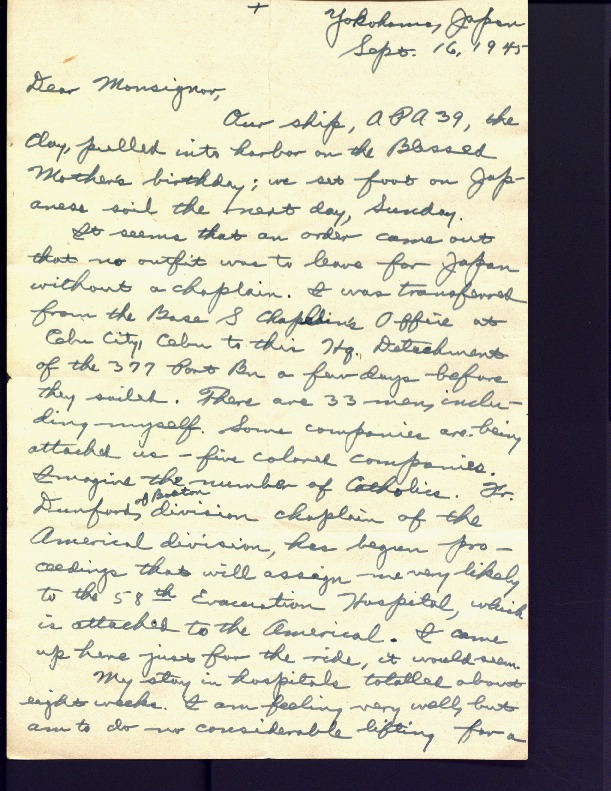 +
Yokohama, Japan
Sept. 16, 1945
Dear Monsignor,
Our ship, APA 39, the
Clay, pulled into harbor on the Blessed
Mother's birthday; we set foot on Jap-
anese soil the next day, Sunday.
It seems that an order came out
that no outfit was to leave for Japan
without a chaplain. I was transferred
from the Base S Chaplain's Office at
Cebu City, Cebu to this Hq. Detachment
of the 377 Port Bn a few days before
they sailed. There are 33 men, inclu-
ding myself. Some companies are being
attached us - five colored companies.
Imagine the number of Catholics. Fr.
Dunford, of Boston division chaplain of the
Americal division, has begun pro-
ceedings that will assign me very likely
to the 58th Evacuation Hospital, which
is attached to the Americal. I came
up here just for the ride, it would seem.
My stay in hospitals totalled about
eight weeks. I am feeling very well, but
am to do no considerable lifting for a